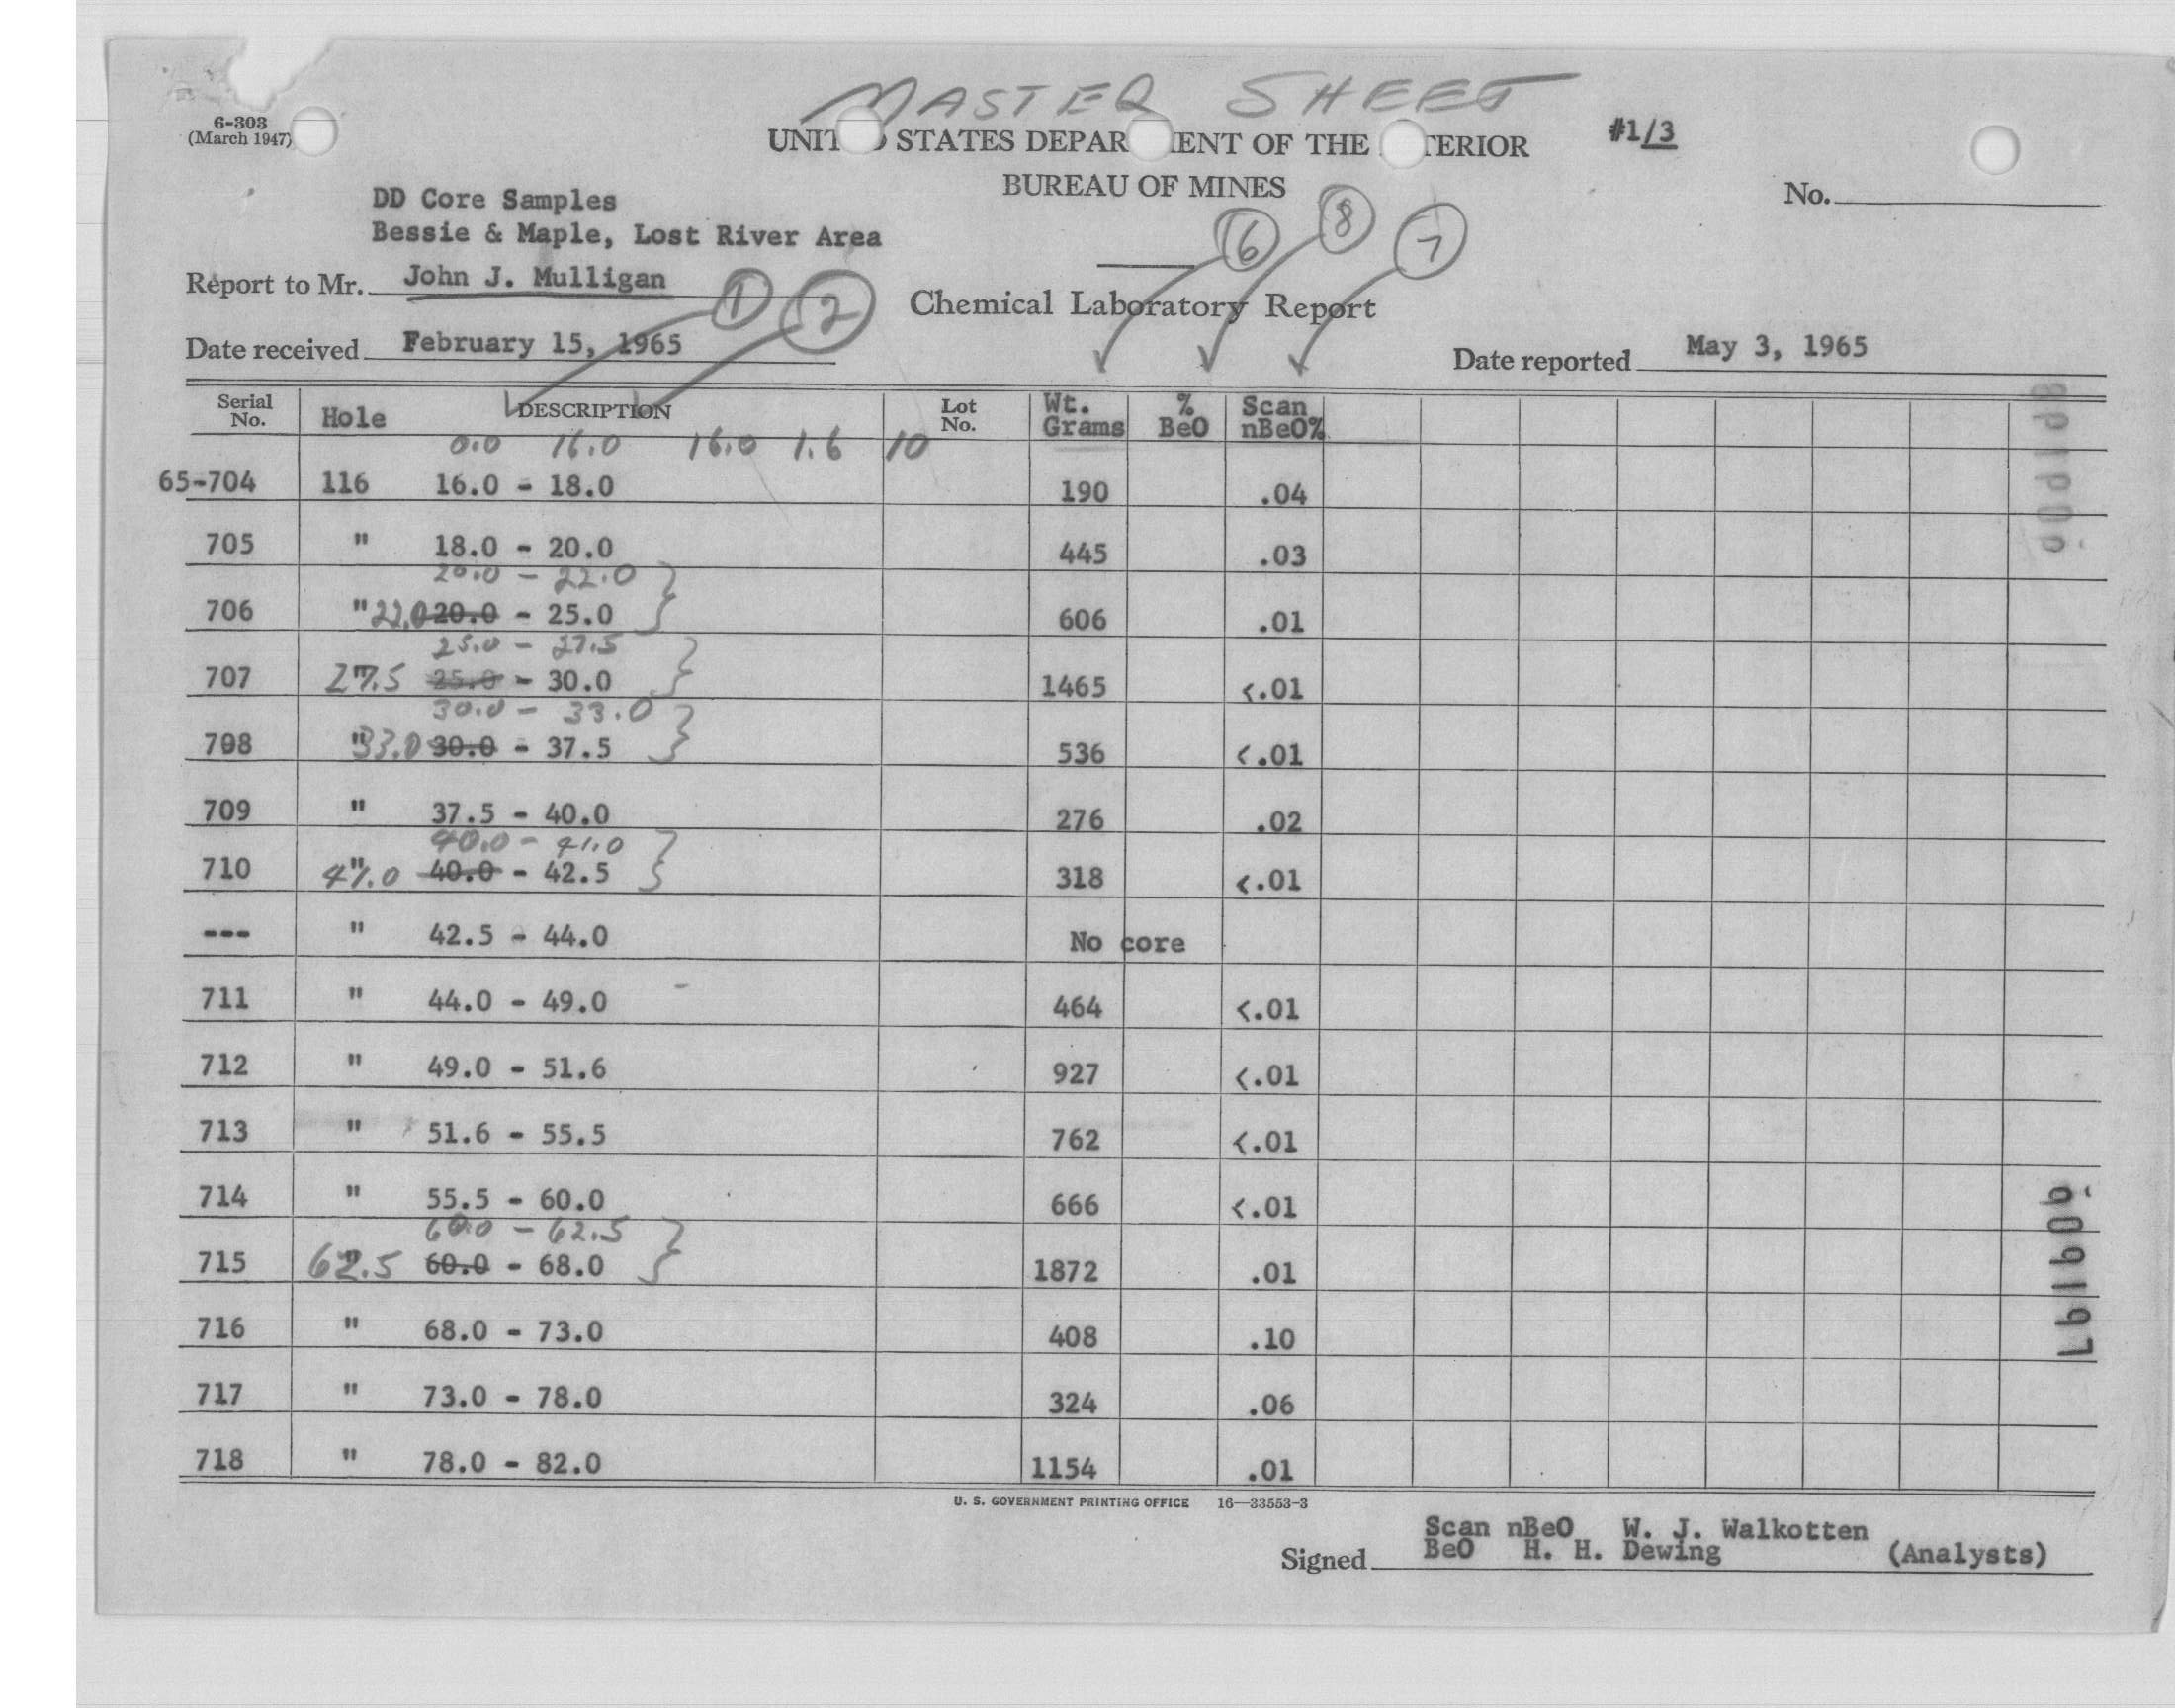 MASTER SHEET
6-303
(March 1947)
UNIT STATES DEPAR ENT OF THE TERIOR
#1/3
BUREAU OF MINES
No.
DD Core Samples
Bessie & Maple, Lost River Area
6 8 7
Report to Mr. John J. Mulligan
1 2
Chemical Laboratory Report
Date received February 15, 1965
Date reported May 3, 1965
Serial No. Hole DESCRIPTION Lot No. Wt. Grams % BeO Scan nBeO%
0.0 16.0 16.0 1.6 10
65-704 116 16.0 - 18.0 190 .04
705 " 18.0 - 20.0 445 .03
20.0 - 22.0
706 " 22.0 20.0 - 25.0 606 .01
25.0 - 27.5
707 " 27.5 25.0 - 30.0 1465 <.01
30.0 - 33.0
708 " 33.0 30.0 - 37.5 536 <.01
709 " 37.5 - 40.0 276 .02
40.0 - 41.0
710 " 41.0 40.0 - 42.5 318 <.01
--- " 42.5 - 44.0 No core
711 " 44.0 - 49.0 464 <.01
712 " 49.0 - 51.6 927 <.01
713 " 51.6 - 55.5 762 <.01
714 " 55.5 - 60.0 666 <.01
60.0 - 62.5
715 " 62.5 60.0 - 68.0 1872 .01
716 " 68.0 - 73.0 408 .10
717 " 73.0 - 78.0 324 .06
718 " 78.0 - 82.0 1154 .01
U. S. GOVERNMENT PRINTING OFFICE 16—33553-3
Scan nBeO W. J. Walkotten
Signed BeO H. H. Dewing (Analysts)